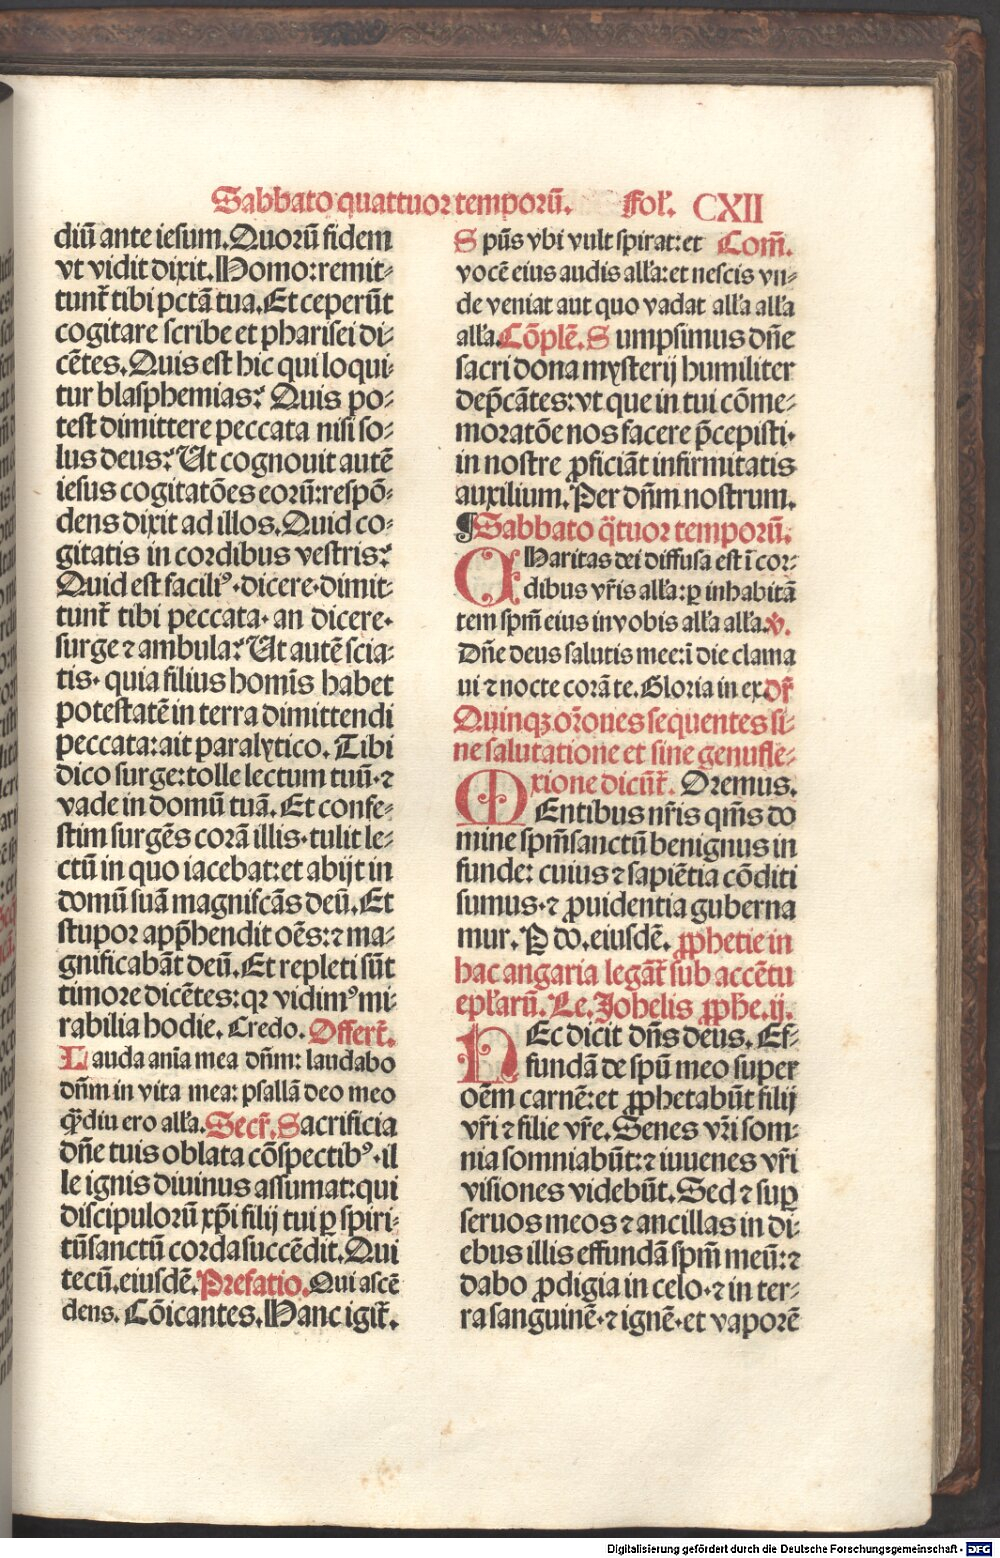 Sabbato quattuor temporū. Fol. CXII
diū ante iesum. Quorū fidem
vt vidit dixit. Homo: remit-
tunt̄ tibi pctā tua. Et ceperūt
cogitare scribe et pharisei di-
cētes. Quis est hic qui loqui-
tur blasphemias? Quis po-
test dimittere peccata nisi so-
lus deus? Ut cognouit autē
iesus cogitatōes eorū: respō-
dens dixit ad illos. Quid co-
gitatis in cordibus vestris?
Quid est faciliꝰ · dicere · dimit-
tunt̄ tibi peccata · an dicere ·
surge ⁊ ambula? Ut autē scia-
tis · quia filius homīs habet
potestatē in terra dimittendi
peccata: ait paralytico. Tibi
dico surge: tolle lectum tuū · ⁊
vade in domū tuā. Et confe-
stim surgēs corā illis · tulit le-
ctū in quo iacebat: et abijt in
domū suā magnificās deū. Et
stupor app̄hendit oēs: ⁊ ma-
gnificabāt deū. Et repleti sūt
timore dicētes: qꝛ vidimꝰ mi-
rabilia hodie. Credo. Offert̄.
Lauda aīa mea dn̄m: laudabo
dn̄m in vita mea: psallā deo meo
q̄diu ero all'a. Secr̄. Sacrificia
dn̄e tuis oblata cōspectibꝰ · il
le ignis diuinus assumat: qui
discipulorū xp̄i filij tui ꝑ spiri-
tūsanctū corda succēdit. Qui
tecū. eiusdē. Prefatio. Qui ascē
dens. Cōicantes. Hanc igit̄.
Spūs vbi vult spirat: et Com̄.
vocē eius audis all'a: et nescis vn-
de veniat aut quo vadat all'a all'a
all'a. Cōplē. Sumpsimus dn̄e
sacri dona mysterij humiliter
dep̄cātes: vt que in tui cōme-
moratōe nos facere p̄cepisti ·
in nostre ꝓficiāt infirmitatis
auxilium. Per dn̄m nostrum.
¶ Sabbato q̄tuor temporū.
CHaritas dei diffusa est ī cor-
dibus vr̄is all'a: ꝑ inhabitā
tem spm̄ eius in vobis all'a all'a. v.
Dn̄e deus salutis mee: ī die clama
ui ⁊ nocte corā te. Gloria in ex dr̄
Quinqꝫ or̄ones sequentes si-
ne salutatione et sine genufle-
xione dicūt̄. Oremus.
MEntibus nr̄is qm̄s do
mine spm̄sanctū benignus in
funde: cuius ⁊ sapiētia cōditi
sumus · ⁊ ꝓuidentia guberna
mur. P do. eiusdē. ꝓphetie in
hac angaria legāt̄ sub accētu
epl'arū. Le. Johelis ꝓphe. ij.
HEc dicit dn̄s deus. Ef-
fundā de spū meo super
oēm carnē: et ꝓphetabūt filij
vr̄i ⁊ filie vr̄e. Senes vr̄i som-
nia somniabūt: ⁊ iuuenes vr̄i
visiones videbūt. Sed ⁊ suꝑ
seruos meos ⁊ ancillas in di-
ebus illis effundā spm̄ meū: ⁊
dabo ꝓdigia in celo · ⁊ in ter-
ra sanguinē · ⁊ ignē · et vaporē
Digitalisierung gefördert durch die Deutsche Forschungsgemeinschaft - DFG